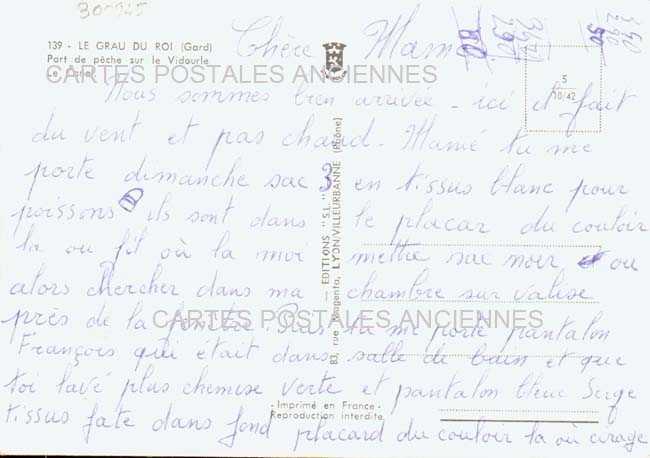 300945
139 - LE GRAU DU ROI (Gard)
Port de pêche sur le Vidourle
Le Canal
Chère Mamé
5
10/42
CARTES POSTALES ANCIENNES
Nous sommes bien arrivée - ici il fait
du vent et pas chaud. Mamé tu me
porte dimanche sac 3 en tissus blanc pour
poissons ils sont dans le placar du couloir
la ou fil où la moi mettre sac noir ou
alors chercher dans ma chambre sur valise
près de la fenêtre. Puis tu me porte pantalon
CARTES POSTALES ANCIENNES
François qui était dans salle de bain et que
toi lavé plus chemise verte et pantalon bleue Serge
tissus fate dans fond placard du couloir la où cirage
EDITIONS "S.L."
83, rue Magenta, LYON/VILLEURBANNE (Rhône)
- Imprimé en France -
Reproduction interdite